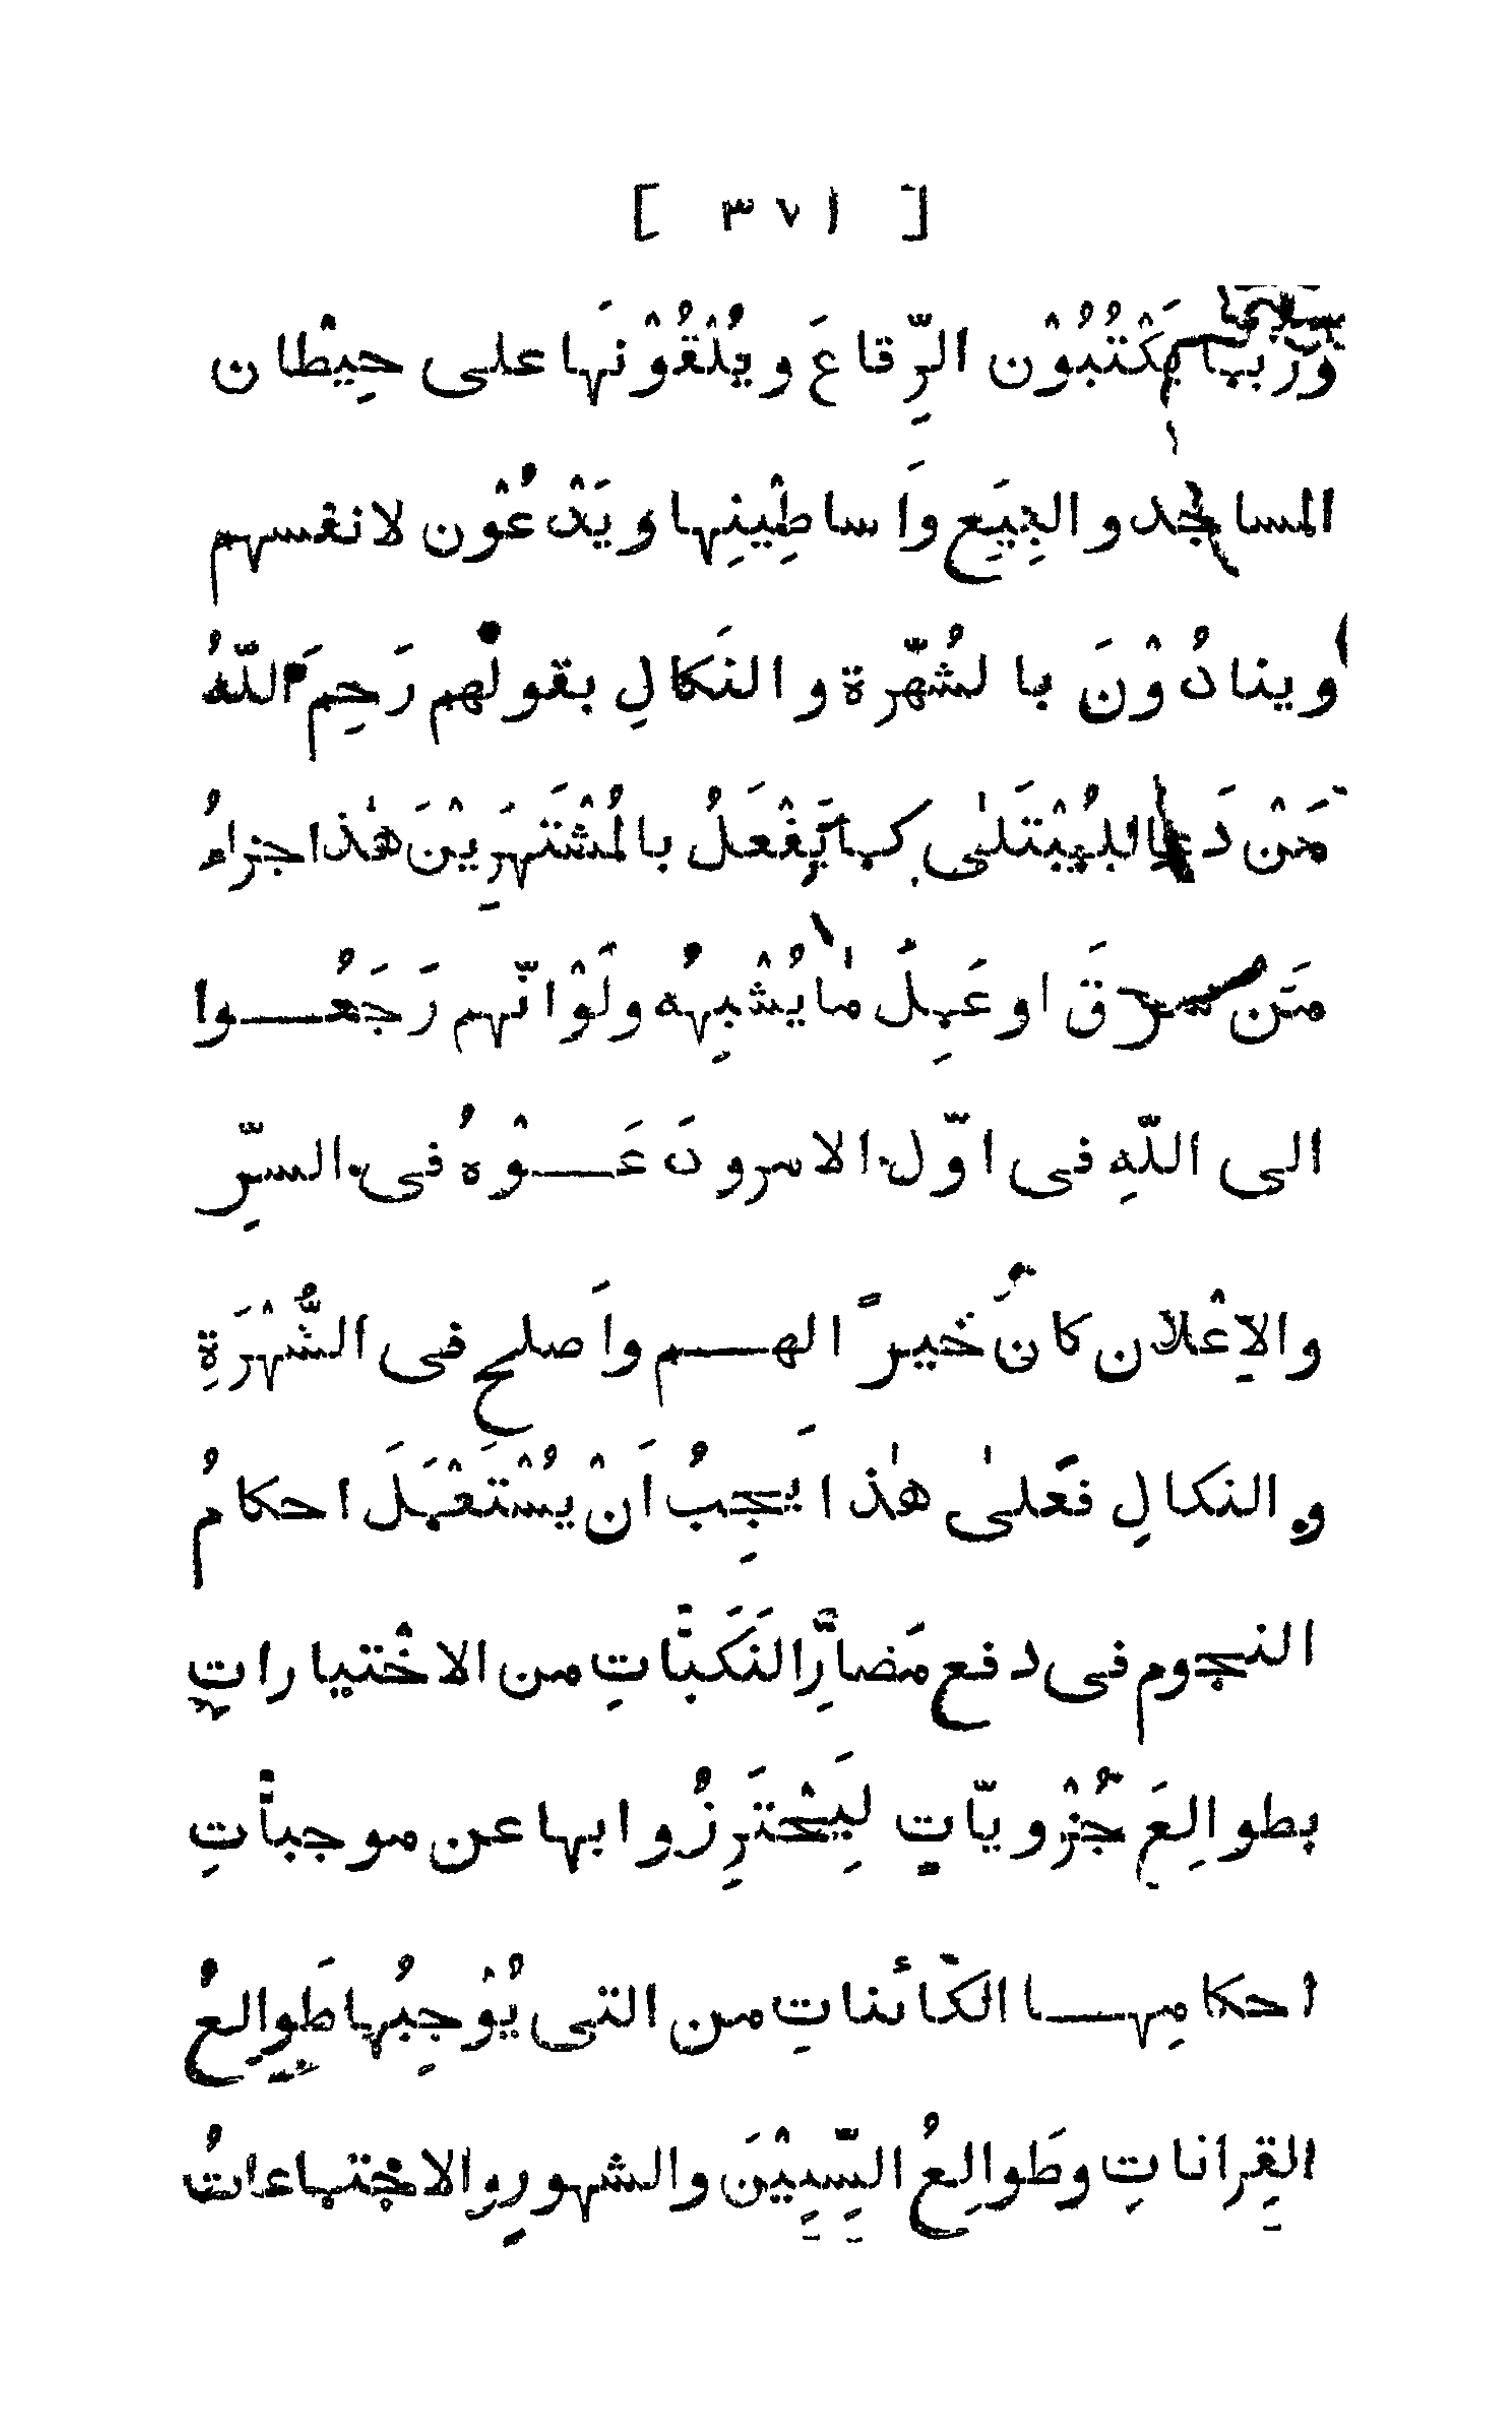 [ ٣٧١ ]
ورُبما يَكْتُبُوْن الرِّقاعَ ويُلْقُوْنَها على حِيْطان
المساجد والبِيَعِ وَاَساطِيْنِها ويَدْعُوْن لانفسهم
وينادُوْنَ بالشُّهْرة والنَكالِ بقولُهم رَحِمَ اللّهُ
مَنْ دَعا للمُبْتَلٰى كما يُفْعَلُ بالمُشْتَهَرِيْنَ هٰذا جزاءُ
مَنْ سرقَ او عَمِلَ مٰا يُشْبِهُه ولَوْ انّهم رَجَعُوا
الى اللّهِ فى اوّل الامر ودَعَوْهُ فى السرِّ
والاِعْلان كانَ خَيرًا لهم واَصلح فى الشُّهْرَةِ
والنكالِ فعَلىٰ هٰذا يَجِبُ اَنْ يُسْتَعْمَلَ احكامُ
النجوم فى دفع مَضارِّ النَكَبْاتِ من الاخْتياراتِ
بطوالِعَ جُزْويّاتٍ لِيَحْتَرِزُوا بها عن موجباتِ
احكامِها الكائناتِ من التى يُوْجِبُها طَوالِعُ
القِراناتِ وطَوالِعُ السِّنِيْنَ والشهورِ والاجْتماعاتُ